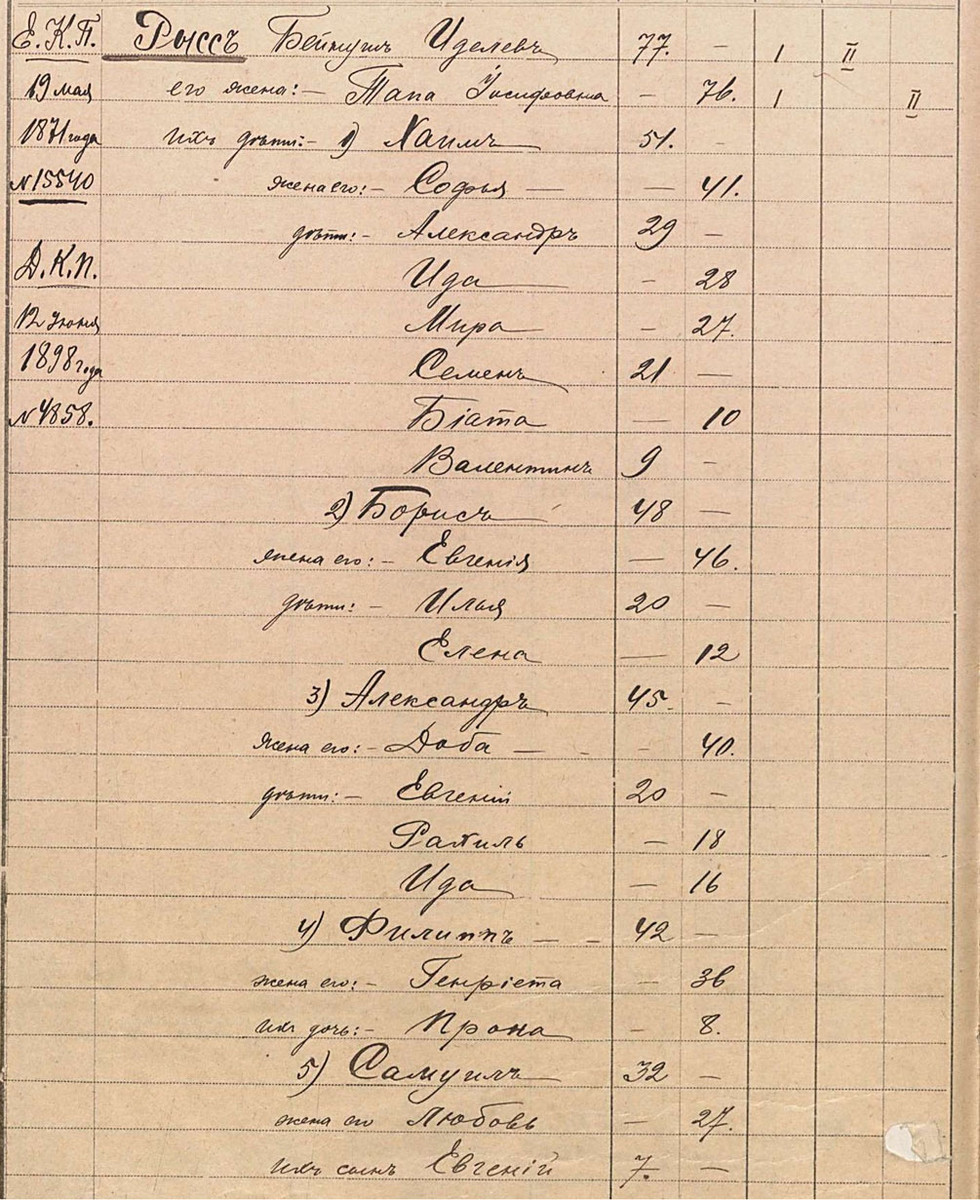 Е. К. П. Рыссъ Бейнушъ Иделевъ 77. – I II
19 мая его жена: – Тапа Іосифовна – 76. I II
1871 года ихъ дѣти: – 1) Хаимъ 51. –
№ 15540 жена его: – Софья – – 41.
дѣти: – Александръ 29 –
Д. К. П. Ида – 28
12 Июня Мира – 27.
1898 года Семенъ 21 –
№ 4858. Біата – 10
Валентинъ 9 –
2) Борисъ 48 –
жена его: – Евгенія – 46.
дѣти: – Илья 20 –
Елена – 12
3) Александръ 45. –
жена его: – Доба – – – 40.
дѣти: – Евгеній 20 –
Рахиль – 18
Ида – 16
4) Филиппъ – – 42 –
жена его: – Генріета – 36
ихъ дочь: – Ирона – 8.
5) Самуилъ 32 –
жена его Любовь – 27.
ихъ сынъ Евгеній 7. –